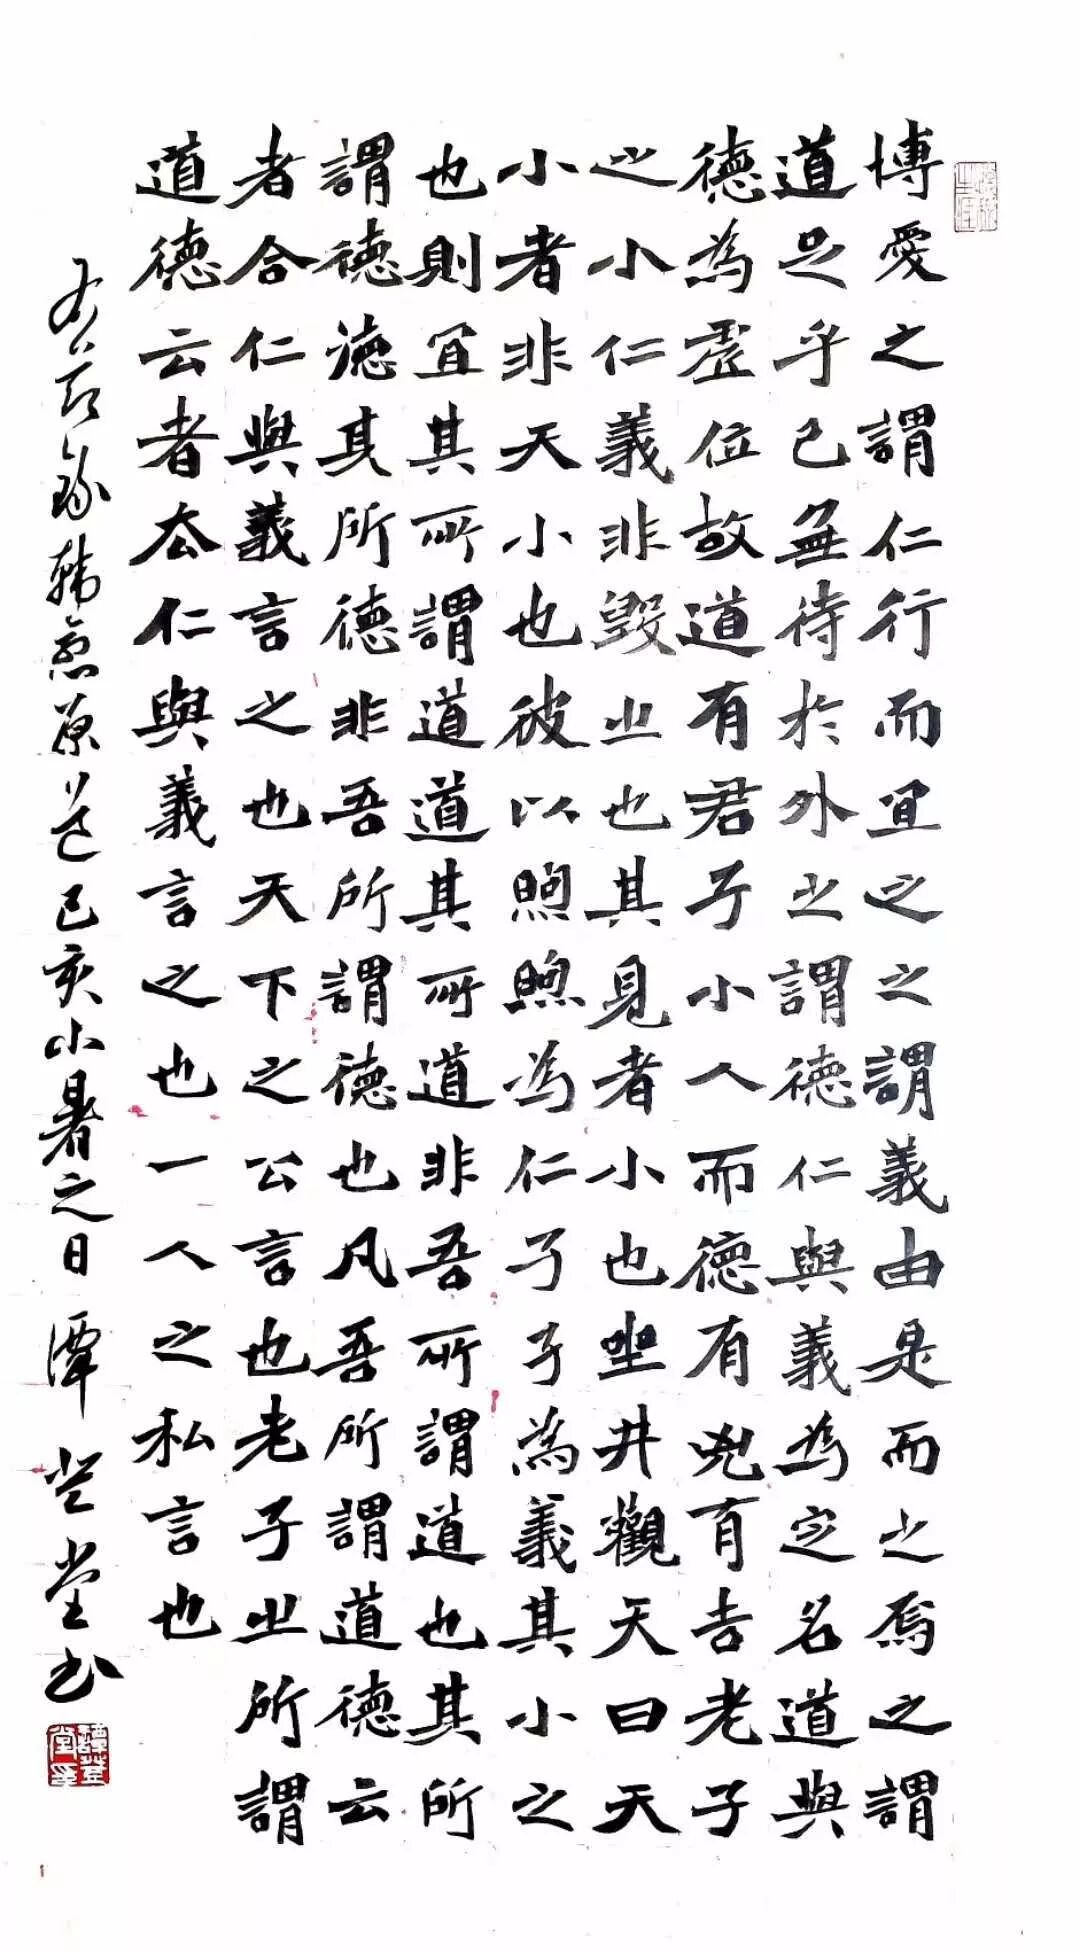 博愛之謂仁行而宜之之謂義由是而之焉之謂
道足乎己無待於外之謂德仁與義為定名道與
德為虛位故道有君子小人而德有兇有吉老子
之小仁義非毀之也其見者小也坐井觀天曰天
小者非天小也彼以煦煦為仁孑孑為義其小之
也則宜其所謂道道其所道非吾所謂道也其所
謂德德其所德非吾所謂德也凡吾所謂道德云
者合仁與義言之也天下之公言也老子之所謂
道德云者去仁與義言之也一人之私言也
右節錄韓愈原道己亥小暑之日譚登堂书
譚登堂印